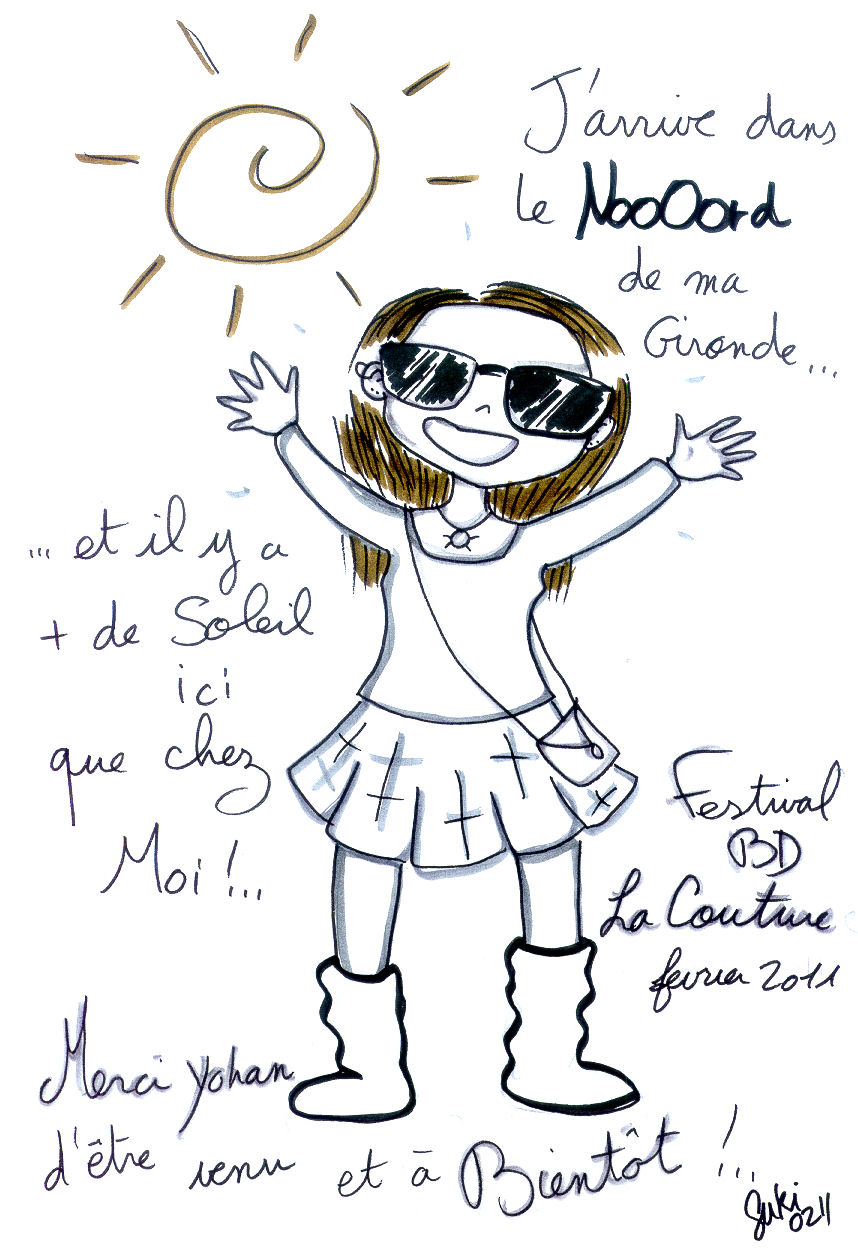 J'arrive dans
le NooOord
de ma
Gironde...
... et il y a
+ de Soleil
ici
que chez
Moi !...
Festival
BD
La Couture
février 2011
Merci Yohan
d'être venu et à Bientôt !...
Suki
0211